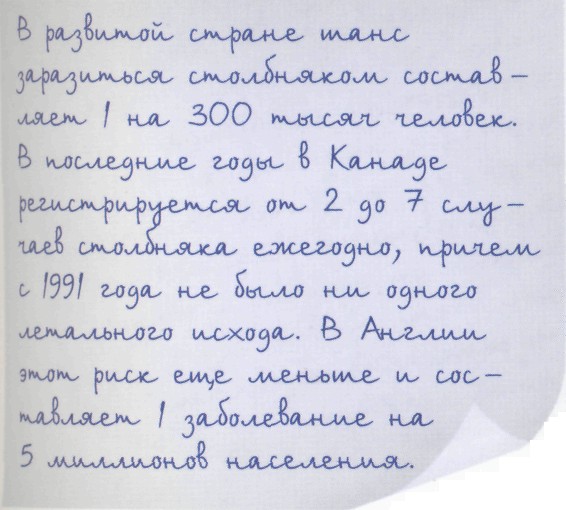 В развитой стране шанс
заразиться столбняком состав-
ляет 1 на 300 тысяч человек.
В последние годы в Канаде
регистрируется от 2 до 7 слу-
чаев столбняка ежегодно, причем
с 1991 года не было ни одного
летального исхода. В Англии
этот риск еще меньше и сос-
тавляет 1 заболевание на
5 миллионов населения.